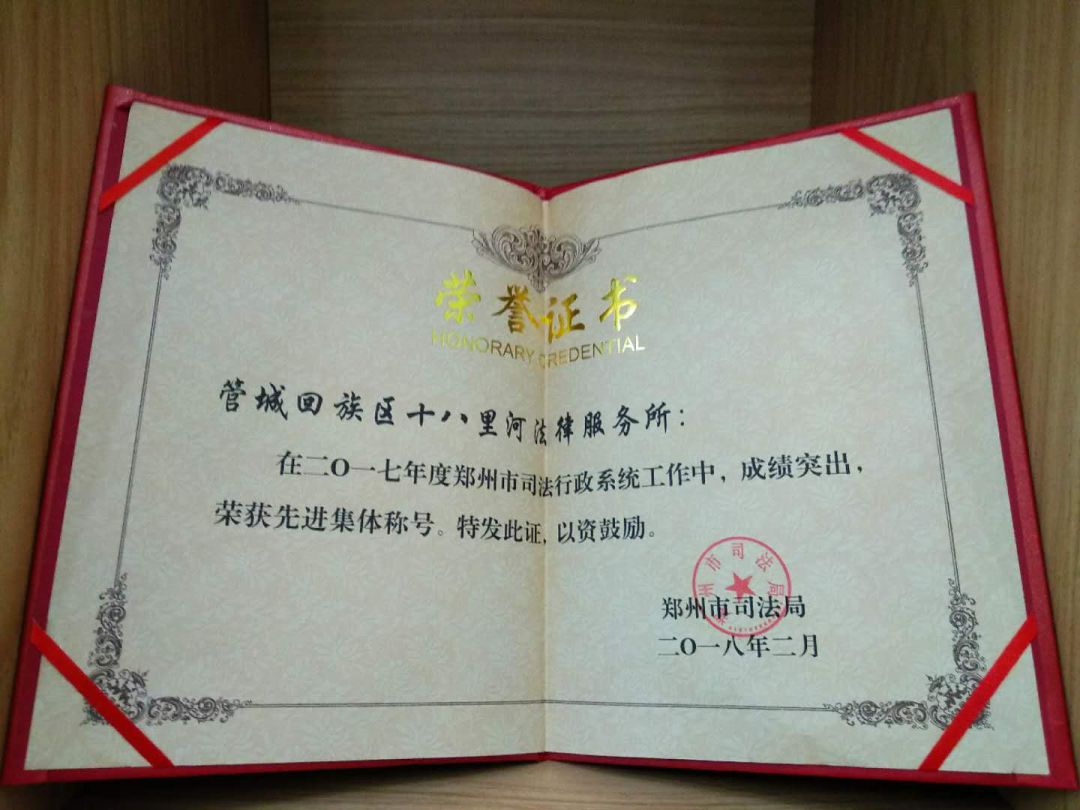 荣誉证书
HONORARY CREDENTIAL
管城回族区十八里河法律服务所：
在二〇一七年度郑州市司法行政系统工作中，成绩突出，
荣获先进集体称号。特发此证，以资鼓励。
州市司法局
郑州市司法局
二〇一八年二月